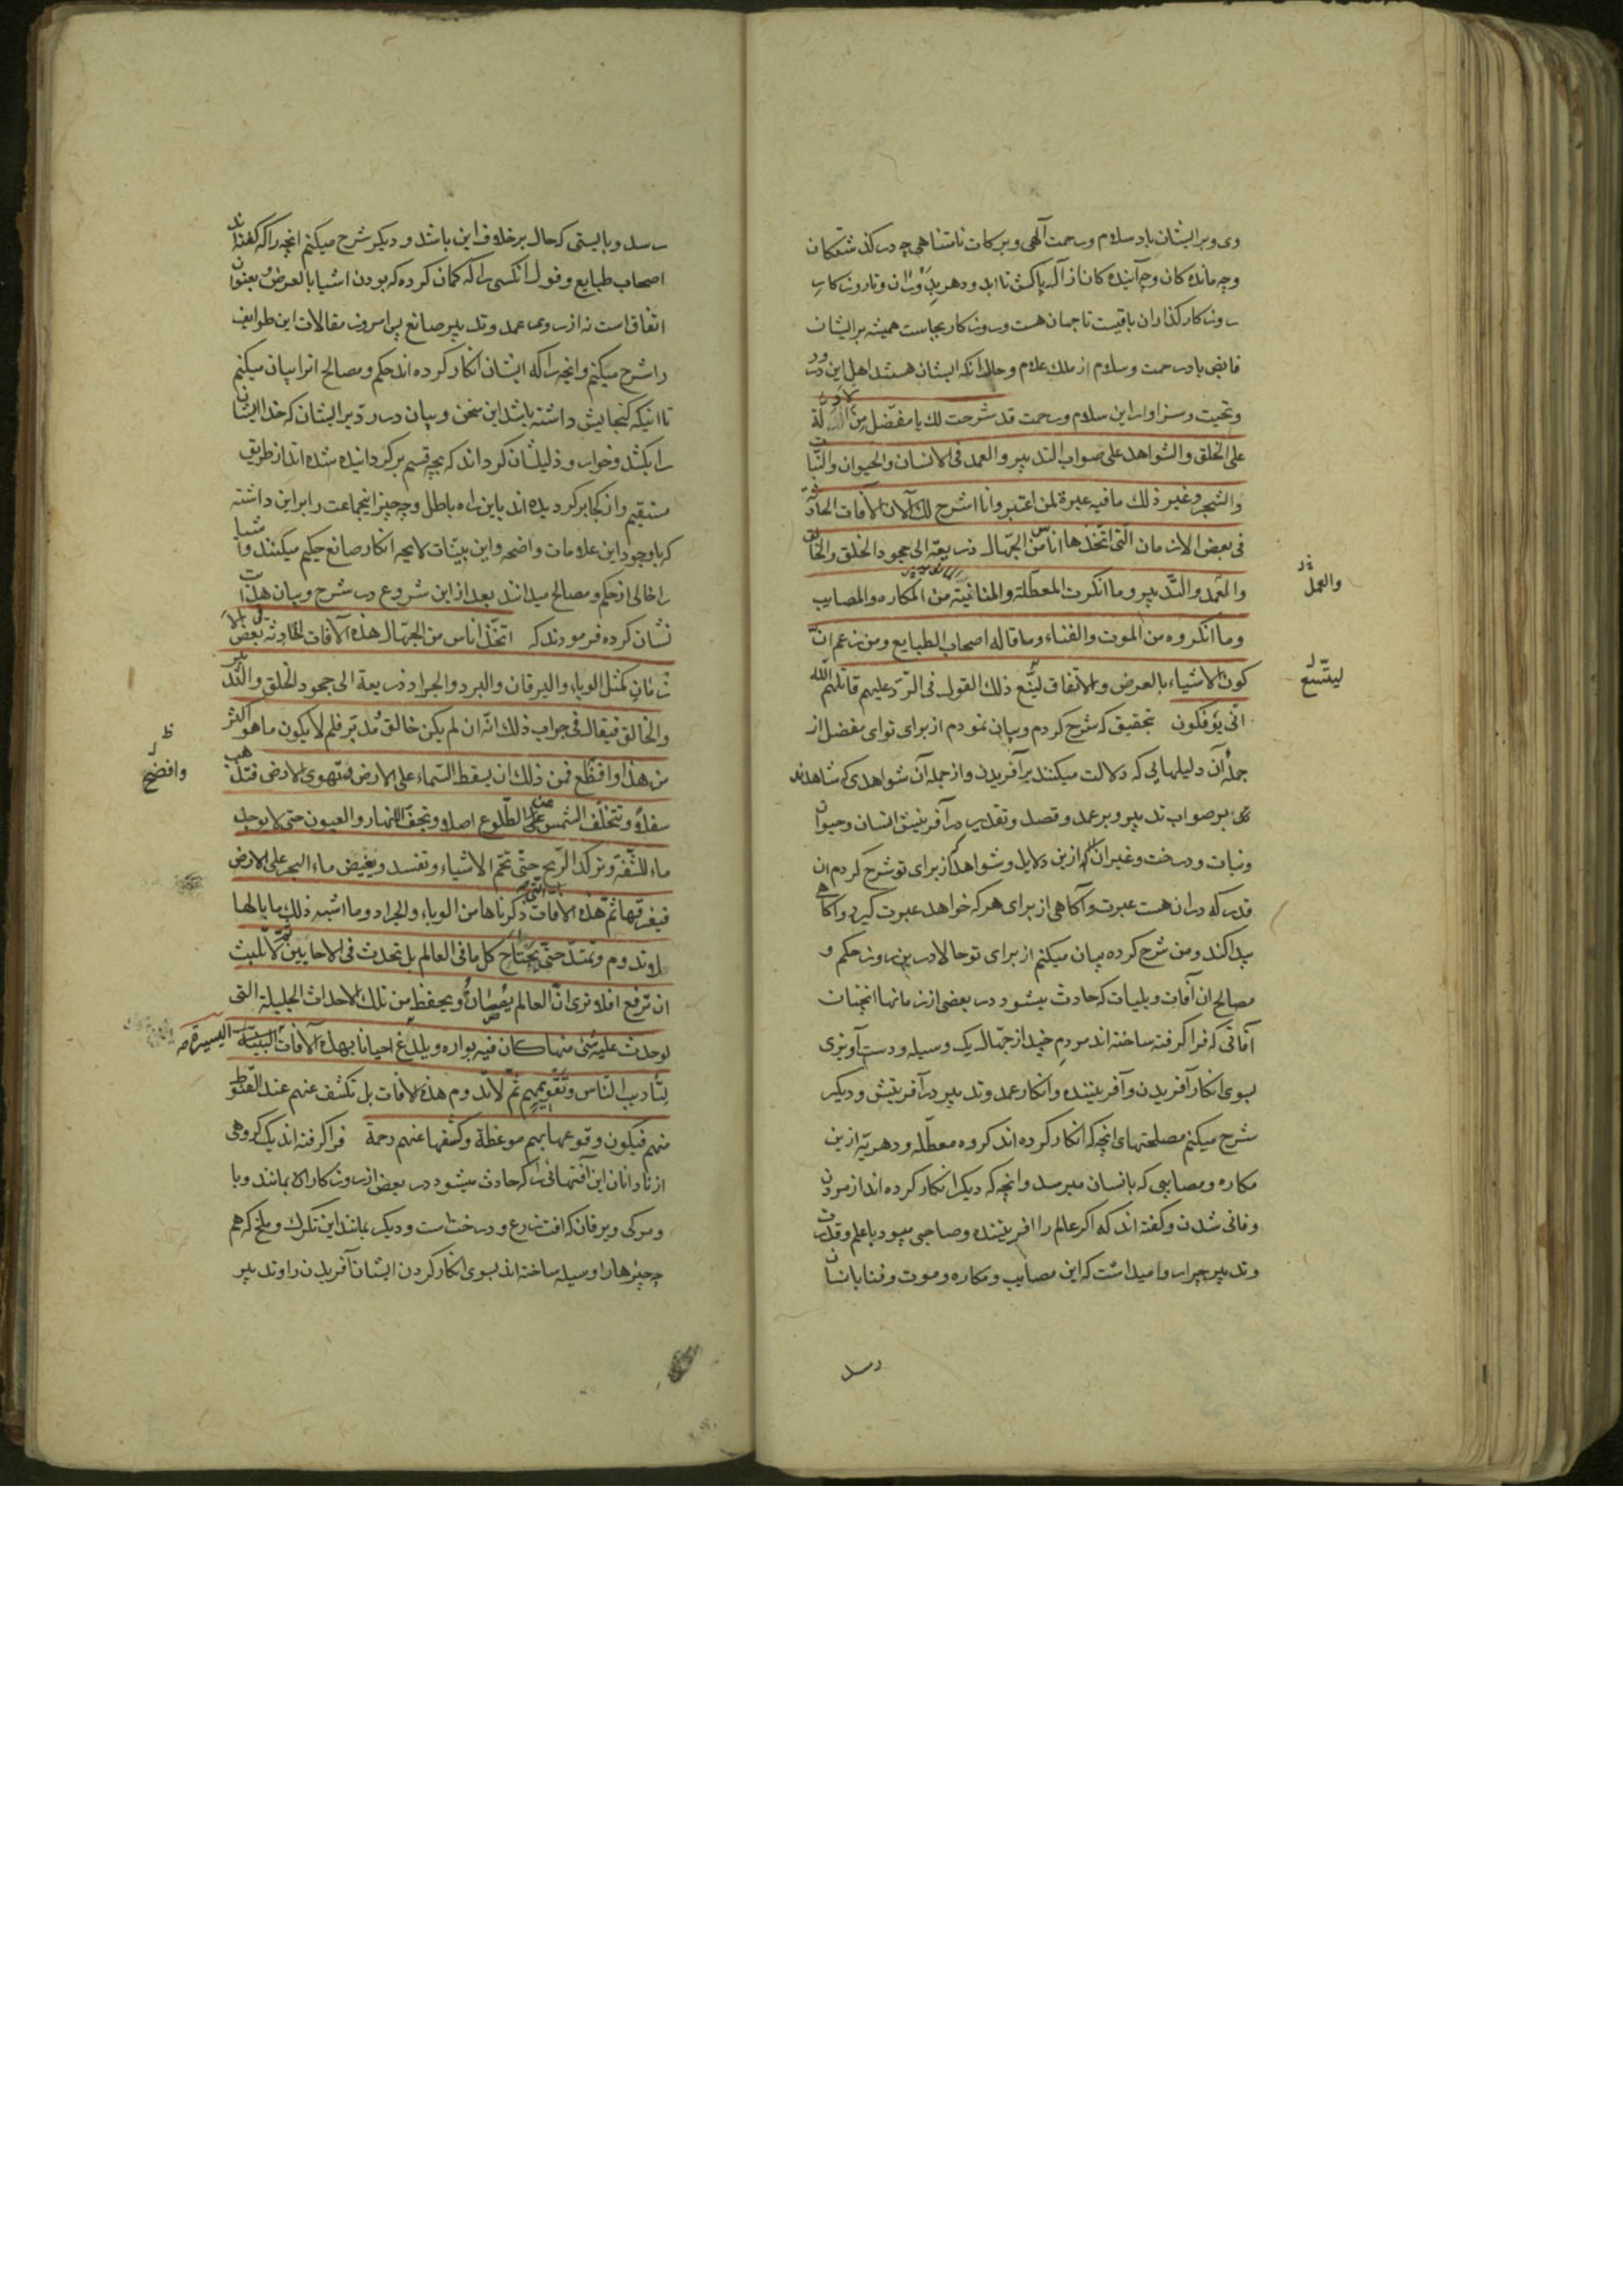 وی و بر ایشان باد سلام و رحمت آلهی و برکات نامتناهی چه در گذشتگان
و چه مانده کان و چه آینده کان از آل پاکش تا ابد و دهر
روزکار گذاران باقیست تا جهان هست و روزکار بجاست همیشه بر ایشان
فایض باد رحمت و سلام از ملک علام و حال آنکه ایشان هستند اهل این درود
و تحیت و سزاوار این سلام و رحمت قد شرحت لک یا مفضّل من الادلة
علی الخلق والشواهد علی صواب التدبیر والعمد فی الانسان والحیوان والنبات
والشجر وغیر ذلک ما فیه عبرة لمن اعتبر وانا اشرح لک الآن الآفات الحادثة
فی بعض الازمان الّتی اتّخذها اناس من الجهّال ذریعة الی جحود الخلق والخالق
والعمد والتّدبیر وما انکرت المعطّلة والمنانیة من المکاره والمصایب
وما انکروه من الموت والفناء وما قاله اصحاب الطبایع ومن زعم انّ
کون الاشیاء بالعرض والاتفاق لیتّسع ذلک القول فی الرّد علیهم قاتلهم الله
انّی یؤفکون بتحقیق که شرح کردم و بیان نمودم از برای تو ای مفضل از
جمله آن دلیلهایی که دلالت میکنند بر آفریدن و از جمله آن شواهدی که شاهدند
بر صواب تدبیر و بر عمد و قصد و تقدیر در آفرینش انسان و حیوان
و نبات و درخت و غیر آن از این دلایل و شواهد کز برای تو شرح کردم آن
قدر که در آن هست عبرت و آکاهی از برای هر که خواهد عبرت گیرد و آکاهی
پیدا کند و من شرح کرده بیان میکنم از برای تو حالا در این روز حکم و
مصالح آن آفات و بلیات که حادث میشود در بعضی از زمانها آنچنان
آفاتی که فرا گرفته ساخته اند مردم چند از جهّال یک وسیله و دست آویزی
بسوی انکار آفریدن و آفریننده و انکار عمد و تدبیر در آفرینش و دیگر
شرح میکنم مصلحتهای آنچه که انکار کرده اند گروه معطّله و دهریّه از این
مکاره و مصایبی که بانسان میرسد و آنچه که دیگر انکار کرده اند از مردن
و فانی شدن و گفته اند که اگر عالم را آفریننده و صاحبی میبود با علم و قدرت
و تدبیر چرا روا میداشت که این مصایب و مکاره و موت و فنا بانسان
رسد
والعمل
لیتّسع
رسد و بایستی که حال بر خلاف این باشد و دیگر شرح میکنم آنچه را که گفتند
اصحاب طبایع و قول آنکسی را که گمان کرده که بودن اشیا بالعرض و بعنوان
اتفاق است نه از روی عمد و تدبیر صانع پس امروز مقالات این طوایف
را شرح میکنم و آنچه را که ایشان انکار کرده اند حکم و مصالح آنرا بیان میکنم
تا اینکه گنجایش داشته باشد این سخن و بیان در ردّ بر ایشان که خدا ایشان
را بکشد و خوار و ذلیلشان گرداند که بچه قسم برگردانیده شده اند از طریق
مستقیم و از کجا برگردیده اند باین راه باطل و چه چیز اینجماعت را بر این داشته
که باوجود این علامات واضحه و این بیّنات لایحه انکار صانع حکیم میکنند و اشیا
را خالی از حکم و مصالح میدانند بعد از این شروع در شرح و بیان
نشان کرده فرمودند که اتخّذ اناس من الجهّال هذه الآفات الحادثة فی بعض
زمانٍ کمثل الوباء والیرقان والبرد والجراد ذریعة الی جحود الخلق والتّدبیر
والخالق فیقال فی جواب ذلک انّه ان لم یکن خالق مُدبّر فلم لا یکون ما هو اکثر
من هذا وافظع فمن ذلک ان یسقط السّماء علی الارض وتهوی الارض فتذهب
سفلاً وتتخلّف الشمس عن الطّلوع اصلا وتجفّ الانهار والعیون حتی لا یوجد
ماء للشّفة وترکد الرّیح حتّی تخم الاشیاء وتفسد ویفیض ماء البحر علی الارض
فیغرقها ثمّ هذه الآفات الّتی ذکرناها من الوباء والجراد وما اشبه ذلک ما بالها
لا تدوم وتمتدّ حتّی یجتاح کل ما فی العالم بل تحدث فی الاحایین ثم لا تلبث
ان ترفع افلا تری انّ العالم یصان ویحفظ من تلک الاحداث الجلیلة التی
لو حدث علیه شئ منها کان فیه بواره ویلدغ احیانا بهذه الآفات الیسیرة
لتأدیب النّاس وتقویمهم ثمّ لا تدوم هذه الآفات بل تکشف عنهم عند القنوط
منهم فیکون وقوعها بهم موعظة وکشفها عنهم رحمة فرا گرفته اند یک گروهی
از نادانان این آفتهائی را که حادث میشود در بعضی از روزکارا لا بمانند وبا
و مرگی و یرقان که آفت زرع و درخت است و دیگر بمانند این تگرگ و ملخ که هم
چه چیزها را وسیله ساخته اند بسوی انکار کردن ایشان آفریدن را و تدبیر
وافضح
الیسیرة